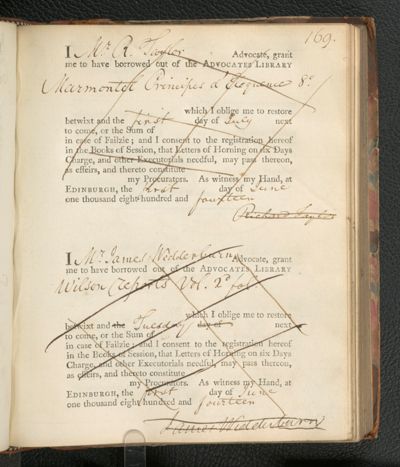 169.
I Mr R. Taylor Advocate, grant
me to have borrowed out of the ADVOCATES LIBRARY
Marmontel Principes d'Eloquence 8o
which I oblige me to restore
betwixt and the first day of July next
to come, or the Sum of
in case of Failzie; and I consent to the registration hereof
in the Books of Session, that Letters of Horning on six Days
Charge, and other Executorials needful, may pass thereon,
as effeirs, and thereto constitute
my Procurators. As witness my Hand, at
EDINBURGH, the first day of June
one thousand eight hundred and fourteen
Richard Taylor
I Mr James Wedderburn, Advocate, grant
me to have borrowed out of the ADVOCATES LIBRARY
Wilson Reports Vol. 2d fol
which I oblige me to restore
betwixt and the Tuesday day of next
to come, or the Sum of
in case of Failzie; and I consent to the registration hereof
in the Books of Session, that Letters of Horning on six Days
Charge, and other Executorials needful, may pass thereon,
as effeirs, and thereto constitute
my Procurators. As witness my Hand, at
EDINBURGH, the first day of June
one thousand eight hundred and fourteen
James Wedderburn